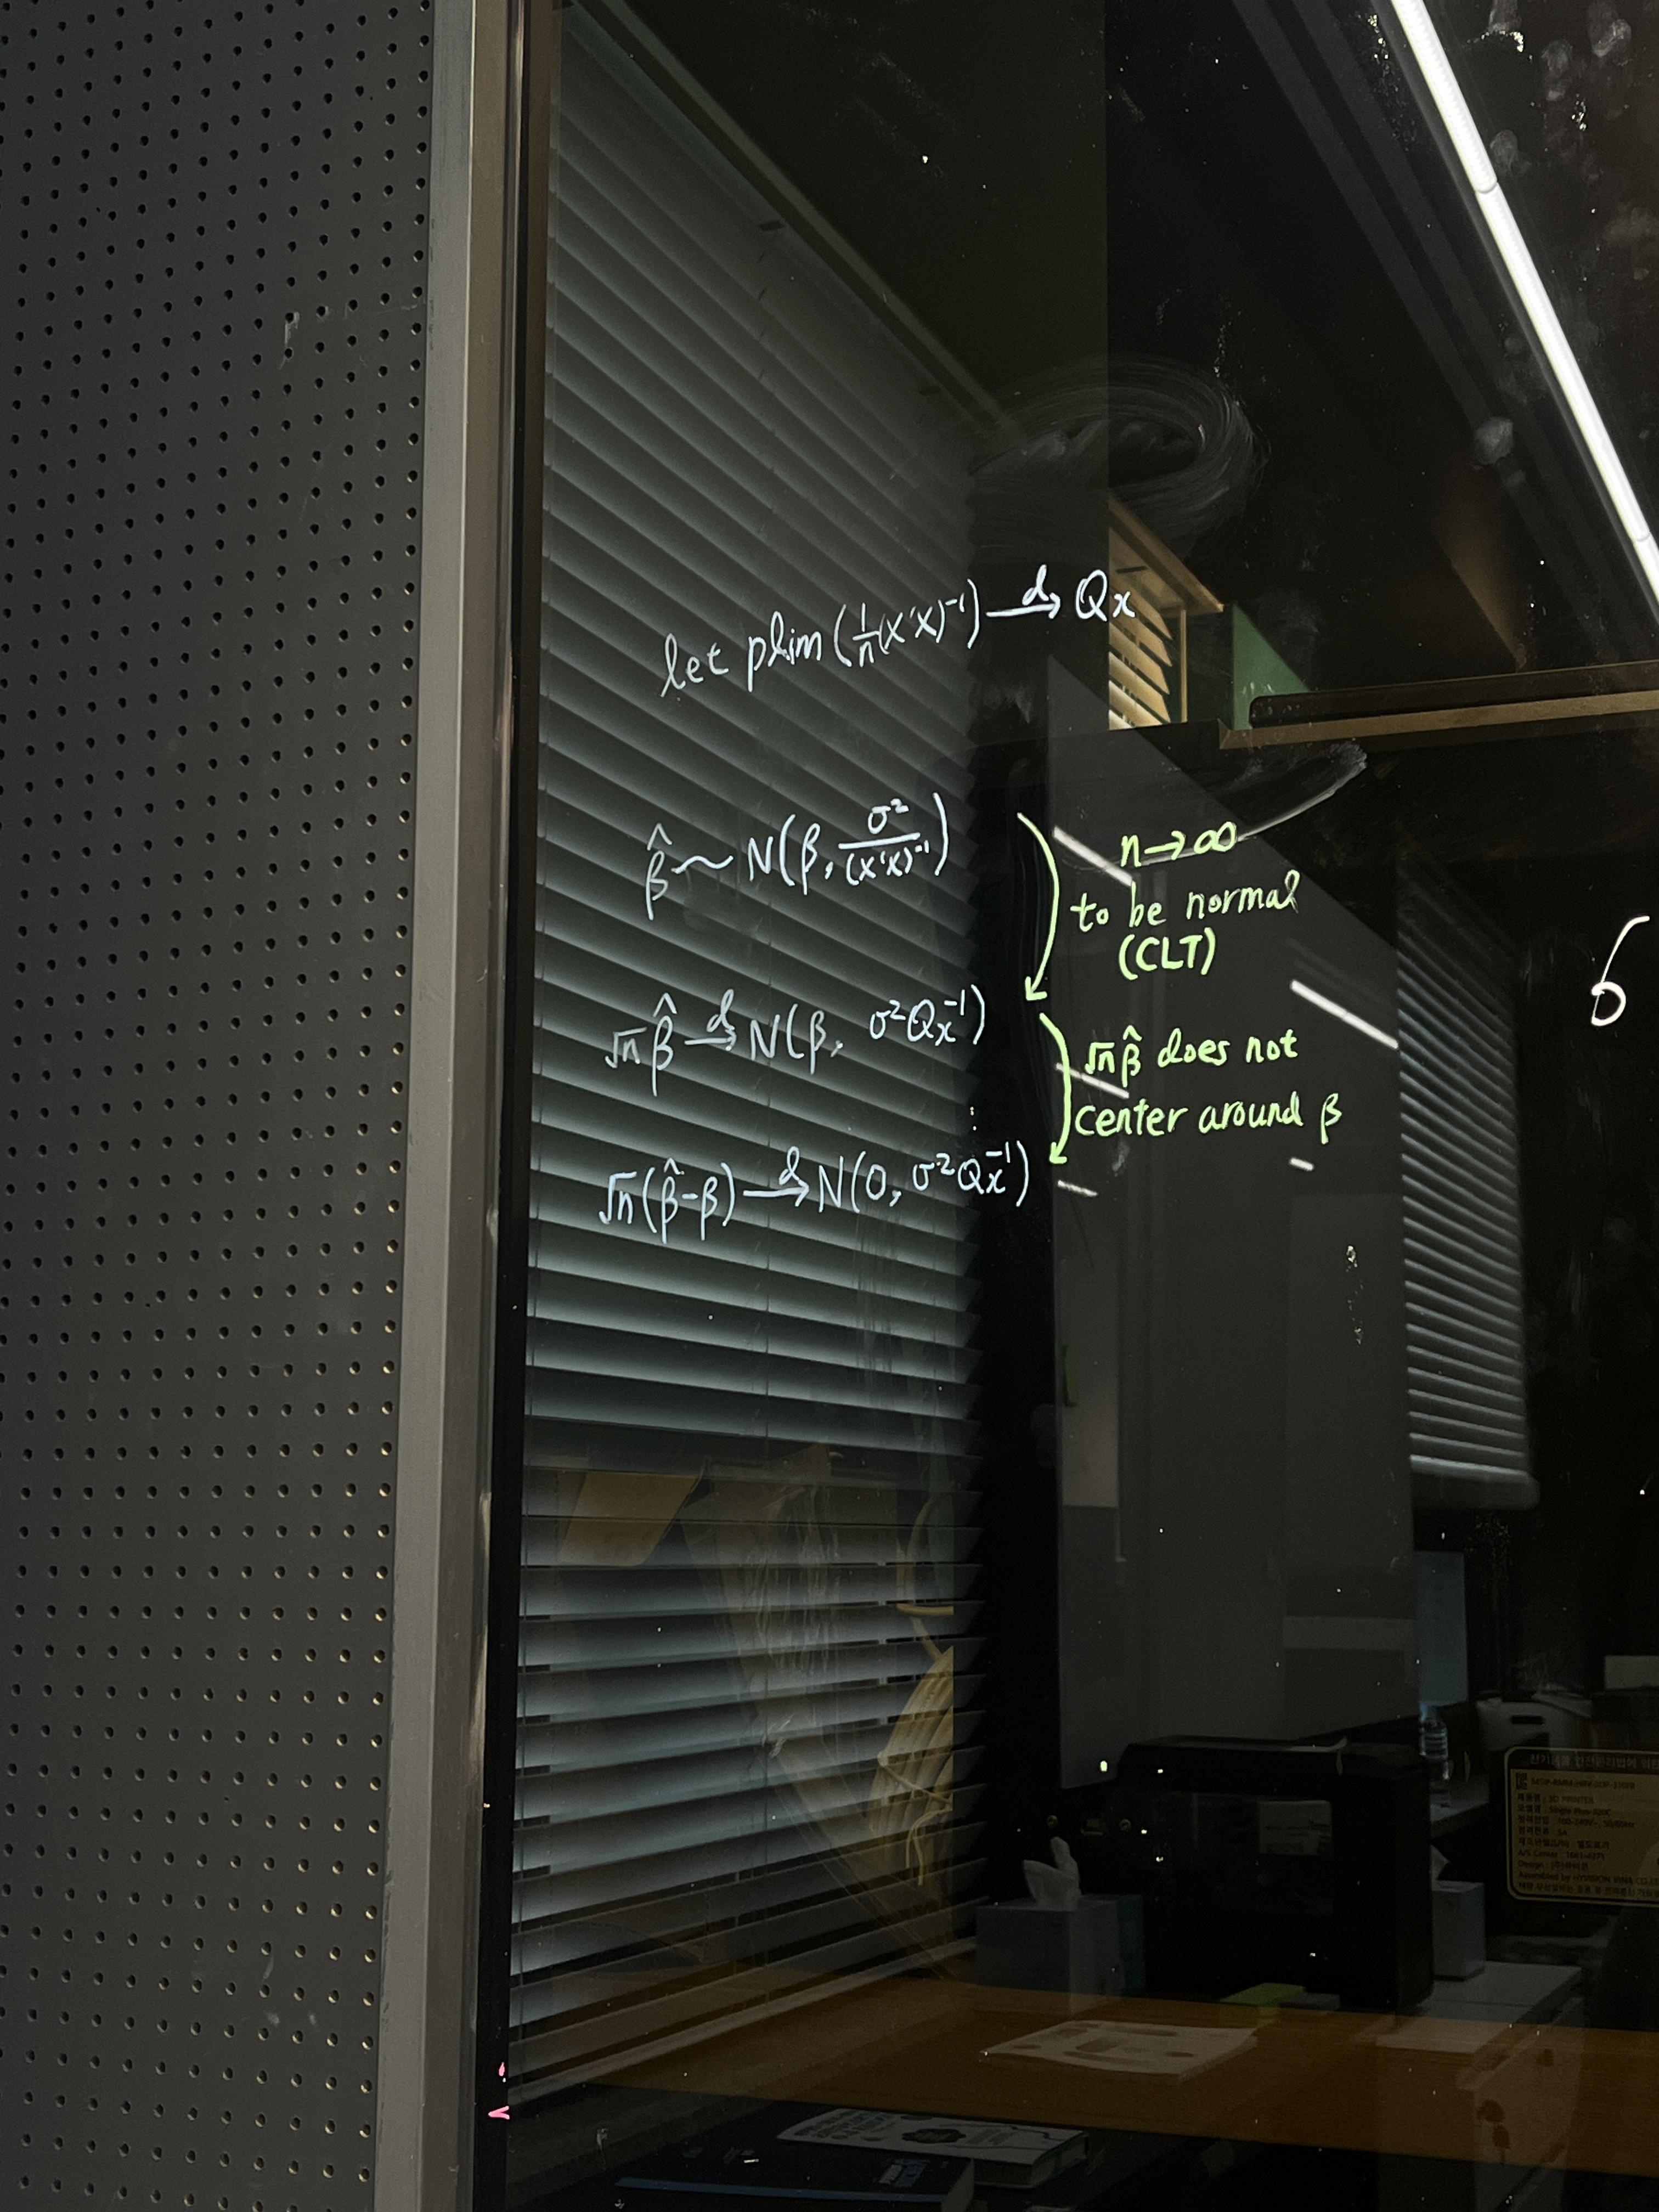 let plim (1/n (X'X)⁻¹) →ᵈ Qx
β̂ ~ N(β, σ²/(X'X)⁻¹)
n→∞
to be normal
(CLT)
√n β̂ →ᵈ N(β, σ²Qx⁻¹)
√n β̂ does not
center around β
√n(β̂-β) →ᵈ N(0, σ²Qx⁻¹)
6
3D PRINTER